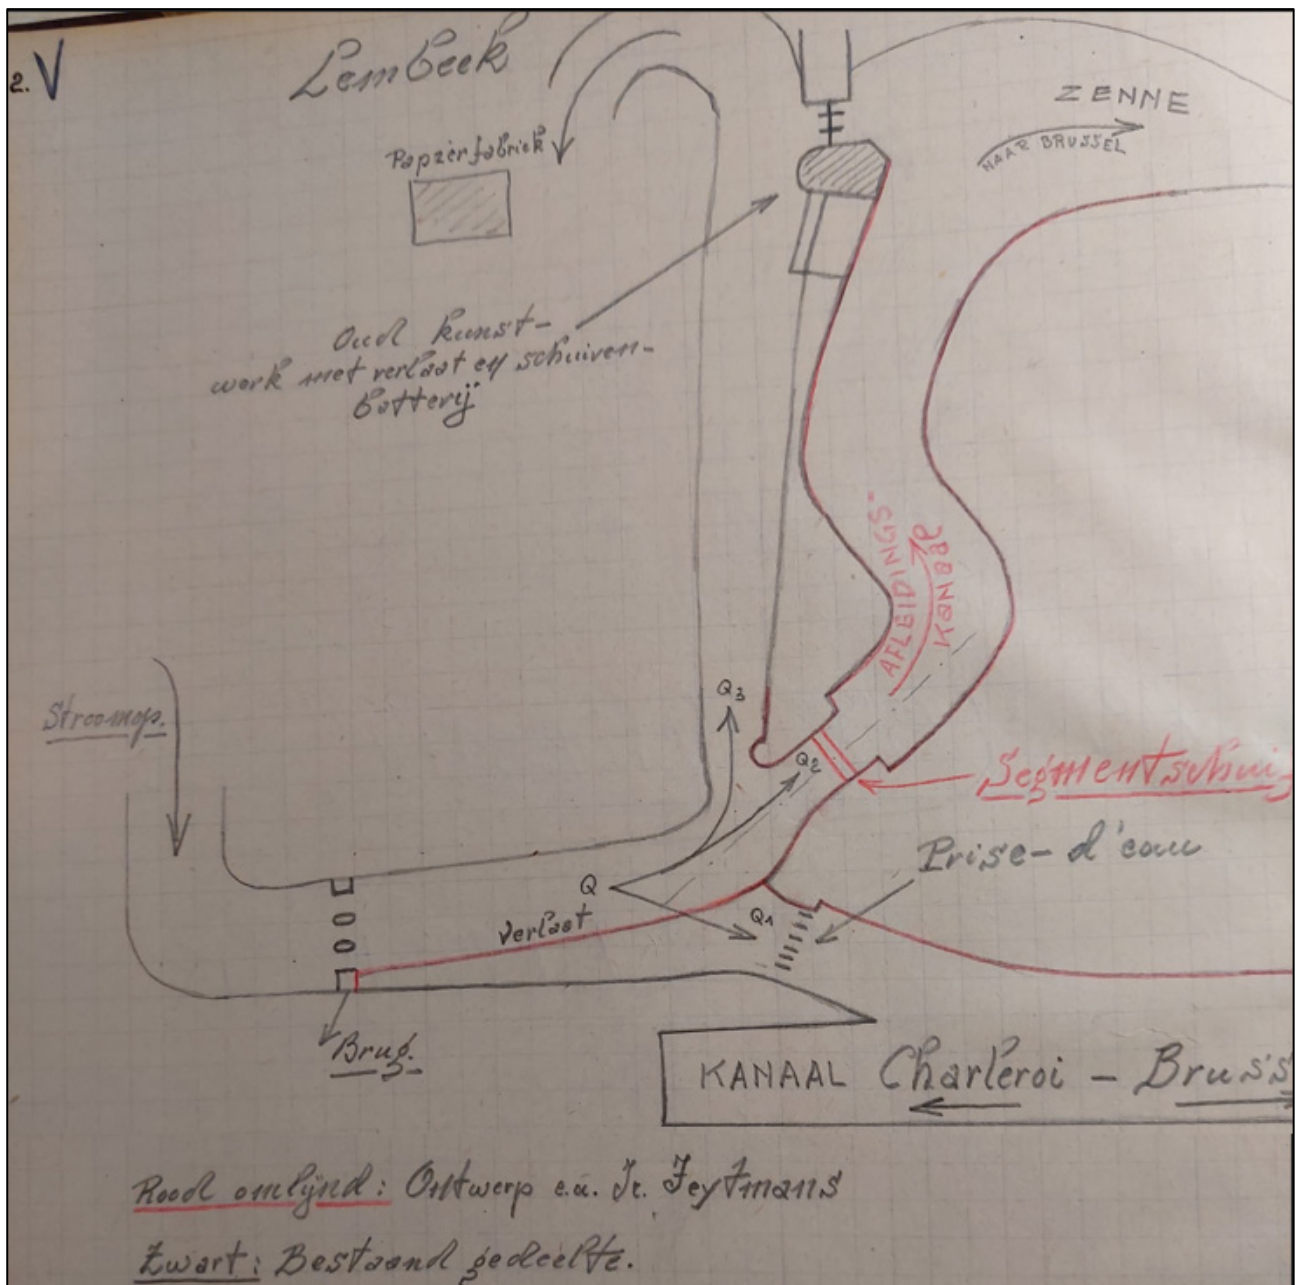 2. V
Lembeek
ZENNE
NAAR BRUSSEL
Papierfabriek
Oud kunst-
werk met verlaat en schuiven-
batterij
AFLEIDINGS-
KANAAL
Stroomop.
Q3
Q2
Segmentschui
Prise-d'eau
Q
Verlaat
Q1
Brug.
KANAAL Charleroi - Bruss
Rood omlijnd: Ontwerp e.a. Ir.
Zwart: Bestaand gedeelte.